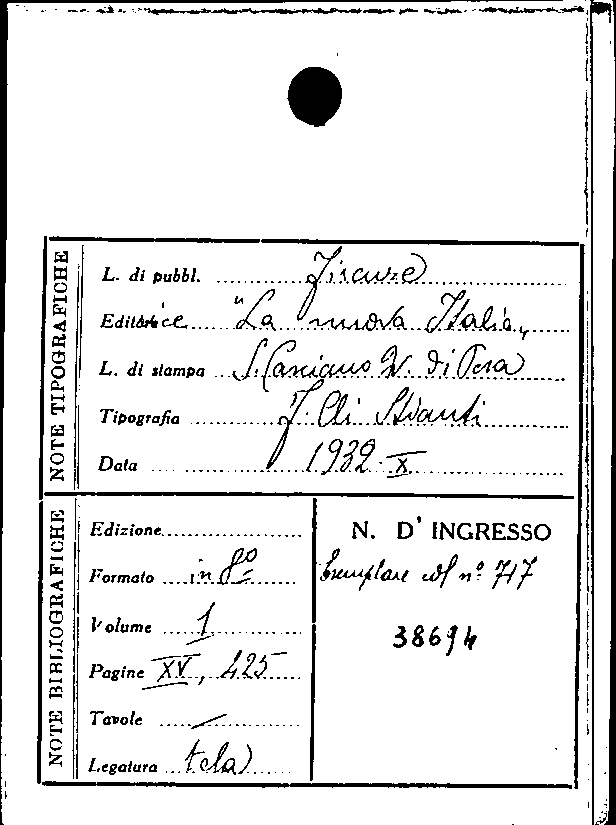 NOTE TIPOGRAFICHE
L. di pubbl. Firenze
Editrice "La nuova Italia"
L. di stampa S. Casciano V. di Pesa
Tipografia F.lli Stianti
Data 1932-X
NOTE BIBLIOGRAFICHE
Edizione
Formato in 8º
Volume 1
Pagine XV, 425
Tavole /
Legatura tela
N. D' INGRESSO
Esemplare col nº 717
38694